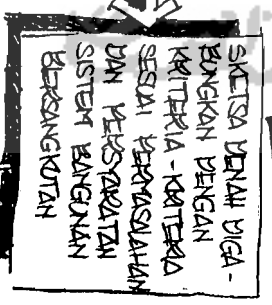 SKETSA DENAH DIGA-
BUNGKAN DENGAN
KRITERIA - KRITERIA
SESUAI PERMASALAHAN
DAN PERSYARATAN
SISTEM BANGUNAN
BERSANGKUTAN